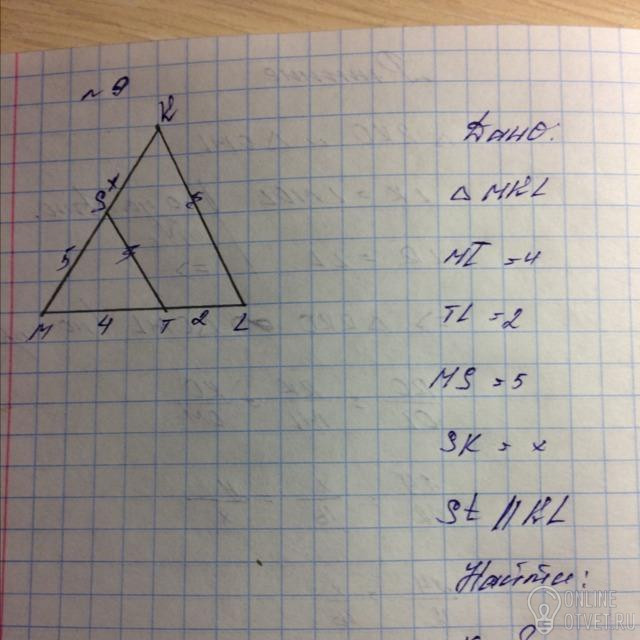 № 9
K
x
S
5
M
4
T
2
L
Дано:
△ MKL
MT = 4
TL = 2
MS = 5
SK = x
St || KL
Найти:
ONLINE
OTVET.RU